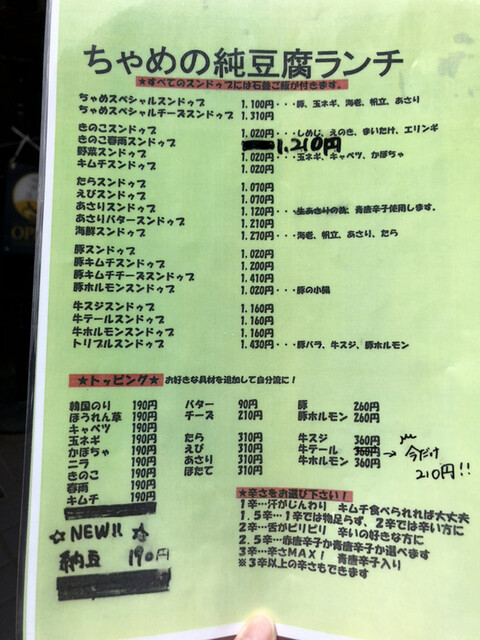 ちゃめの純豆腐ランチ
★すべてのスンドゥブには石釜ご飯が付きます。
ちゃめスペシャルスンドゥブ 1.100円・・・豚、玉ネギ、海老、帆立、あさり
ちゃめスペシャルチーズスンドゥブ 1.310円
きのこスンドゥブ 1.020円・・・しめじ、えのき、まいたけ、エリンギ
きのこ春雨スンドゥブ 1.210円
野菜スンドゥブ 1.020円・・・玉ネギ、キャベツ、かぼちゃ
キムチスンドゥブ 1.020円
たらスンドゥブ 1.070円
えびスンドゥブ 1.070円
あさりスンドゥブ 1.120円・・・生あさりの為、青唐辛子使用します。
あさりバタースンドゥブ 1.210円
海鮮スンドゥブ 1.270円・・・海老、帆立、あさり、たら
豚スンドゥブ 1.020円
豚キムチスンドゥブ 1.200円
豚キムチチーズスンドゥブ 1.410円
豚ホルモンスンドゥブ 1.020円・・・豚の小腸
牛スジスンドゥブ 1.160円
牛テールスンドゥブ 1.160円
牛ホルモンスンドゥブ 1.160円
トリプルスンドゥブ 1.430円・・・豚バラ、牛スジ、豚ホルモン
★トッピング★ お好きな具材を追加して自分流に！
韓国のり 190円 バター 90円 豚 260円
ほうれん草 190円 チーズ 210円 豚ホルモン 260円
キャベツ 190円
玉ネギ 190円 たら 310円 牛スジ 360円
かぼちゃ 190円 えび 310円 牛テール 360円 → 今だけ
ニラ 190円 あさり 310円 牛ホルモン 360円 210円!!
きのこ 190円 ほたて 310円
春雨 190円
キムチ 190円
☆NEW!!☆
納豆 190円
★辛さをお選び下さい！
1辛…汗がじんわり キムチ食べられれば大丈夫
1.5辛…1辛では物足らず、2辛では辛い方に
2辛…舌がピリピリ 辛いの好きな方に
2.5辛…赤唐辛子か青唐辛子が選べます
3辛…辛さMAX！ 青唐辛子入り
※3辛以上の辛さもできます